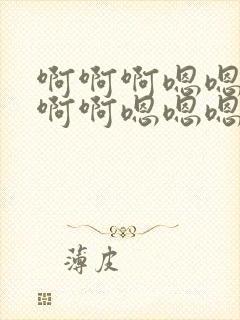 啊啊啊嗯嗯
啊啊嗯嗯嗯
薄皮